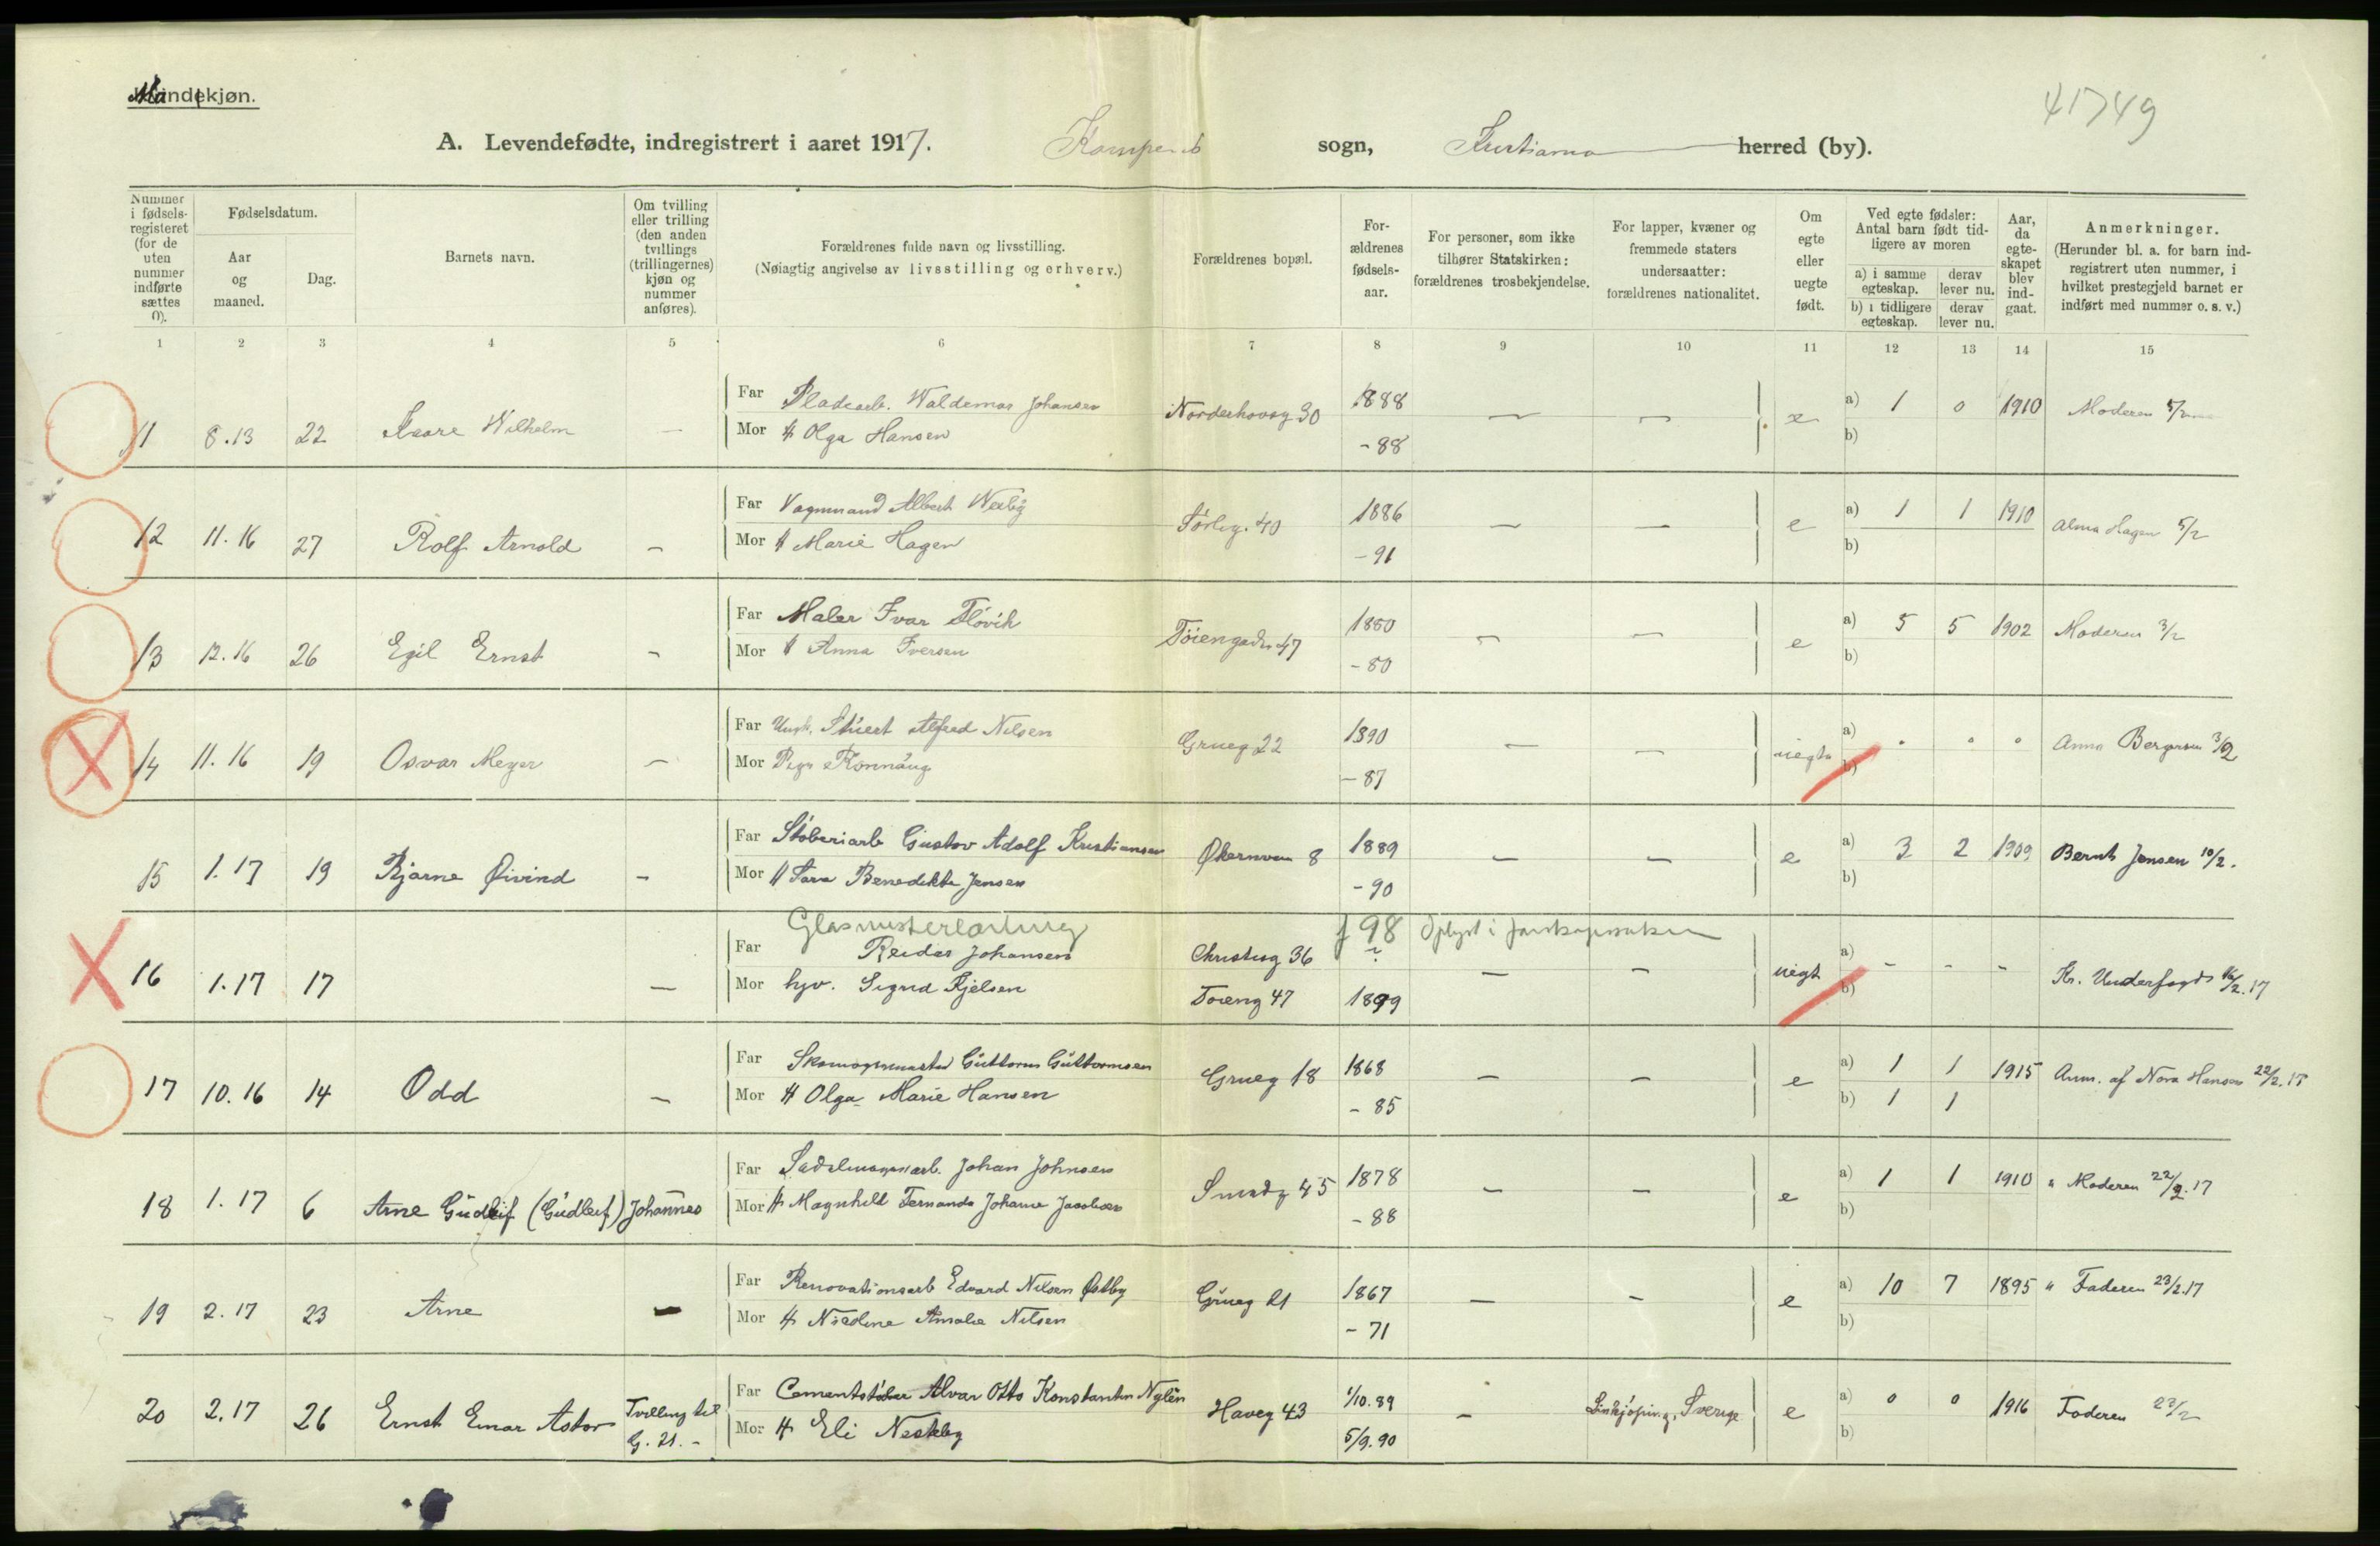 Mandekjøn.
41749
A. Levendefødte, indregistrert i aaret 1917. Kampens sogn, Kristiania herred (by).
Nummer i fødselsregisteret (for de uten nummer indførte sættes 0).
Fødselsdatum.
Aar og maaned.
Dag.
Barnets navn.
Om tvilling eller trilling (den anden tvillings (trillingernes) kjøn og nummer anføres).
Forældrenes fulde navn og livsstilling.
(Nøiagtig angivelse av livsstilling og erhverv.)
Forældrenes bopæl.
Forældrenes fødselsaar.
For personer, som ikke tilhører Statskirken: forældrenes trosbekjendelse.
For lapper, kvæner og fremmede staters undersaatter: forældrenes nationalitet.
Om egte eller uegte født.
Ved egte fødsler: Antal barn født tidligere av moren
a) i samme egteskap.
derav lever nu.
b) i tidligere egteskap.
derav lever nu.
Aar, da egteskapet blev indgaat.
Anmerkninger.
(Herunder bl. a. for barn indregistrert uten nummer, i hvilket prestegjeld barnet er indført med nummer o. s. v.)
1 2 3 4 5 6 7 8 9 10 11 12 13 14 15
Far Pladearb. Waldemar Johansen 1888 a) 1 0 1910
11 8.13 22 Kaare Wilhelm — Norderhovsg 30 — — e Moderen 5/2
Mor H Olga Hansen - 88 b)
Far Vognmand Albert Werby 1886 a) 1 1 1910
12 11.16 27 Rolf Arnold — 40 — — e Alma Hagen 5/2
Mor H Marie Hagen - 91 b)
Far Maler Ivar Fløvik 1880 a) 5 5 1902
13 12.16 26 Egil Ernst - Tøiengaden 47 — — e Moderen 3/2
Mor H Anna Iversen - 80 b)
Far Ungk. Alfred Nilsen 1890 a)
14 11.16 19 Osvar Meyer — Grueg 22 — — uegte Anna Bergersen 3/2
Mor Rønnaug - 87 b)
Far Støberiarb Gustav Adolf Kristiansen 1889 a) 3 2 1909
15 1.17 19 Bjarne Øivind - Økernveien 8 — — e Bernt Jensen 10/2.
Mor H Sara Benedikte Jensen - 90 b)
Glasmesterlærling f 98 Oplyst i farskapssaken
Far Reidar Johansen Christiesg 36 ? a)
16 1.17 17 — — — uegt - - - Kr. Underfogd 16/2.17
Mor hjv. Sigrid Kjelsen Tøieng 47 1899 b)
Far Skomagermester Guttorm Guttormsen 1868 a) 1 1 1915
17 10.16 14 Odd — Grueg 18 — — e Anm. af Nora Hansen 22/2.17
Mor H Olga Marie Hansen - 85 b) 1 1
Far Sadelmagerarb. Johan Johnsen 1878 a) 1 1 1910
18 1.17 6 Arne Gudleif (Gudleif) Johannes Smedg 45 — — e " Moderen 22/2.17
Mor H Magnhild Fernanda Johanne Jacobsen - 88 b)
Far Renovationsarb Edvard Nilsen Østby 1867 a) 10 7 1895
19 2.17 23 Arne — Grueg 21 — — e " Faderen 23/2.17
Mor H Nicoline Amalie Nilsen - 71 b)
Far Cementstøber Alvar Otto Konstantin Nylén 1/10.89 a) 0 0 1916
20 2.17 26 Ernst Einar Astor Tvilling til G. 21. - Haveg 43 — Linkjøping, Sverige e Faderen 27/2
Mor H Eli Nesteby 5/9.90 b)